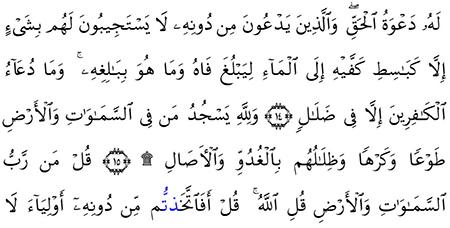 لَهُۥ دَعْوَةُ ٱلْحَقِّ ۖ وَٱلَّذِينَ يَدْعُونَ مِن دُونِهِۦ لَا يَسْتَجِيبُونَ لَهُم بِشَىْءٍ
إِلَّا كَبَـٰسِطِ كَفَّيْهِ إِلَى ٱلْمَآءِ لِيَبْلُغَ فَاهُ وَمَا هُوَ بِبَـٰلِغِهِۦ ۚ وَمَا دُعَآءُ
ٱلْكَـٰفِرِينَ إِلَّا فِى ضَلَـٰلٍ ﴿١٤﴾ وَلِلَّهِ يَسْجُدُ مَن فِى ٱلسَّمَـٰوَٰتِ وَٱلْأَرْضِ
طَوْعًا وَكَرْهًا وَظِلَـٰلُهُم بِٱلْغُدُوِّ وَٱلْأَصَالِ ۩ ﴿١٥﴾ قُلْ مَن رَّبُّ
ٱلسَّمَـٰوَٰتِ وَٱلْأَرْضِ قُلِ ٱللَّهُ ۚ قُلْ أَفَٱتَّخَذتُّم مِّن دُونِهِۦٓ أَوْلِيَآءَ لَا